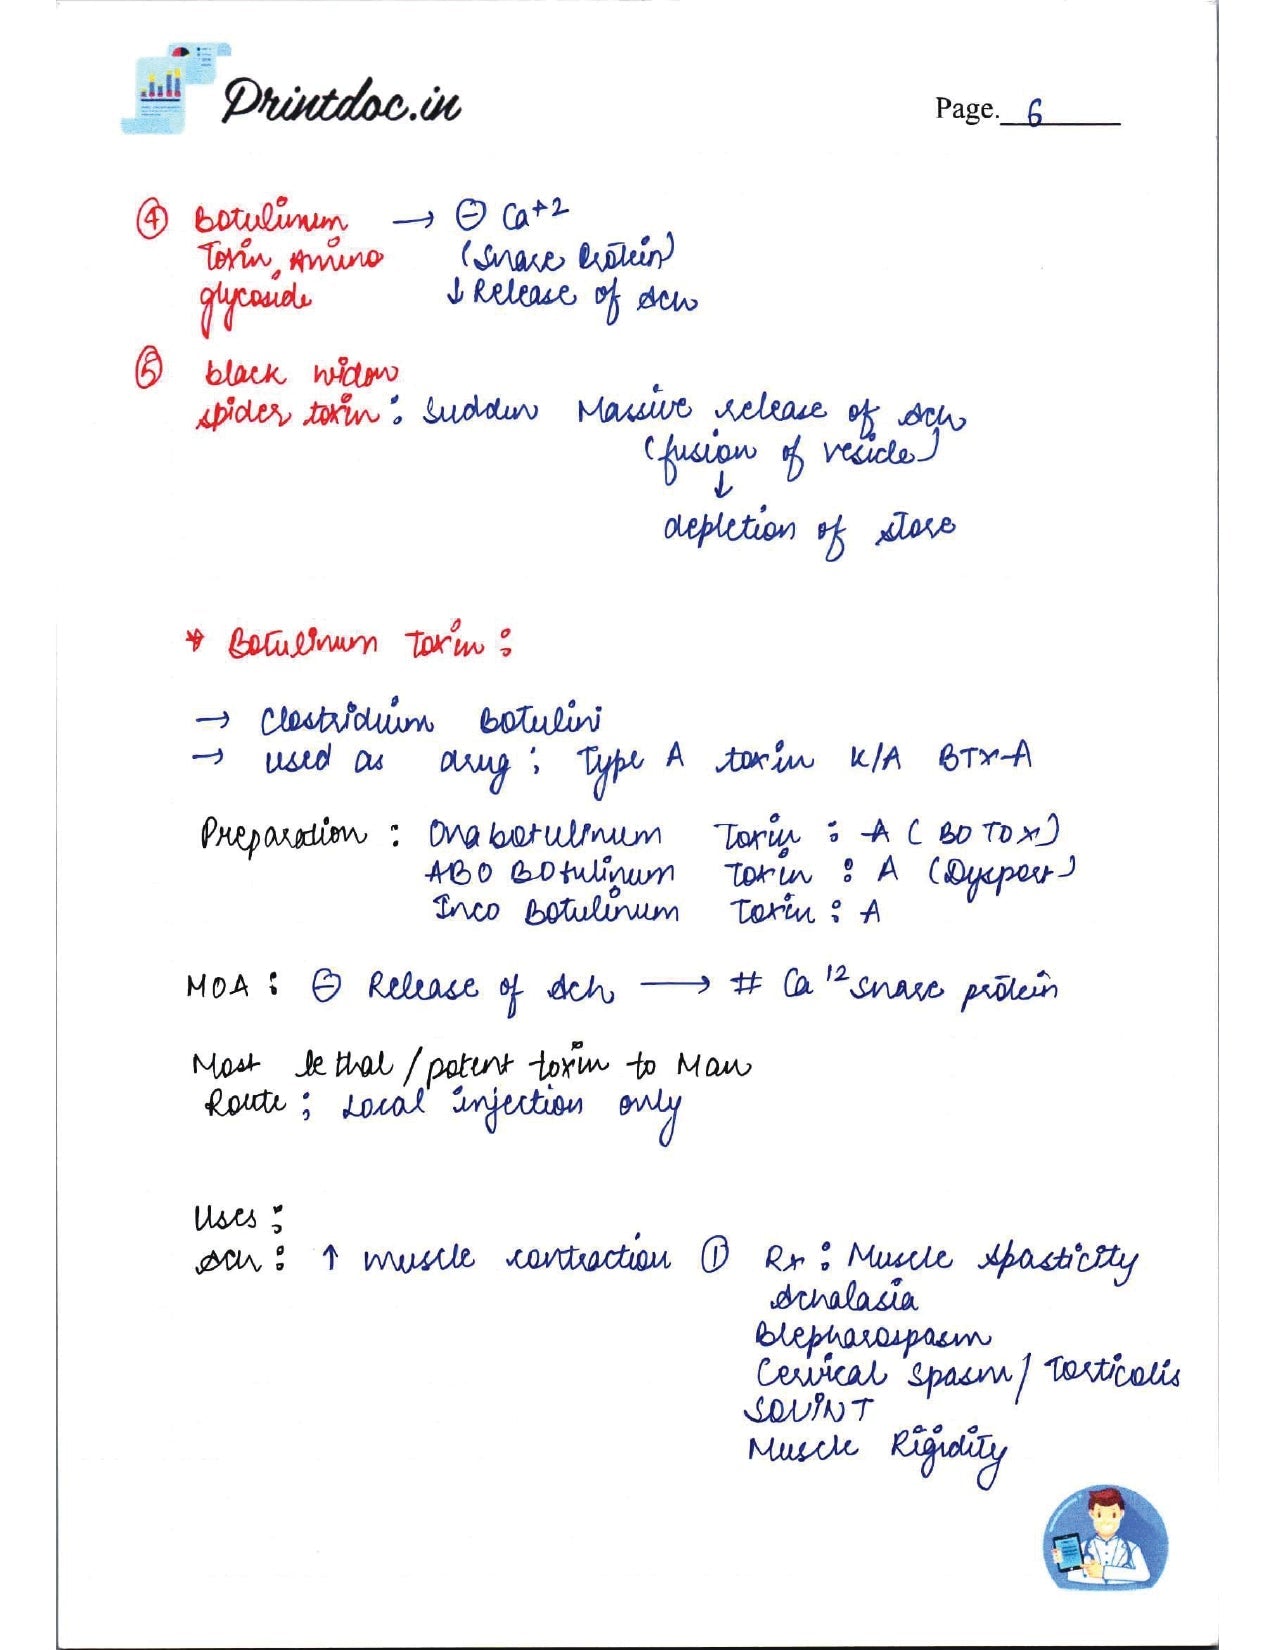 Printdoc.in
Page. 6
④ Botulinum → ⊖ Ca+2
Toxin, Amino (Snare Protein)
glycoside ↓ Release of Ach
⑤ black widow
spider toxin : Sudden Massive release of Ach
(fusion of vesicle)
↓
depletion of store
* Botulinum Toxin :
→ Clostridium Botulini
→ used as drug : Type A toxin K/A BTX-A
Preparation : Ona botulinum Toxin : A (BOTOX)
ABO BOtulinum Toxin : A (Dysport)
Inco Botulinum Toxin : A
MOA : ⊖ Release of Ach → # Ca +2 snare protein
Most lethal / potent toxin to Man
Route : Local injection only
Uses :
Ach : ↑ muscle contraction ① Rx : Muscle Spasticity
Achalasia
Blepharospasm
Cervical Spasm / Torticolis
SQUINT
Muscle Rigidity